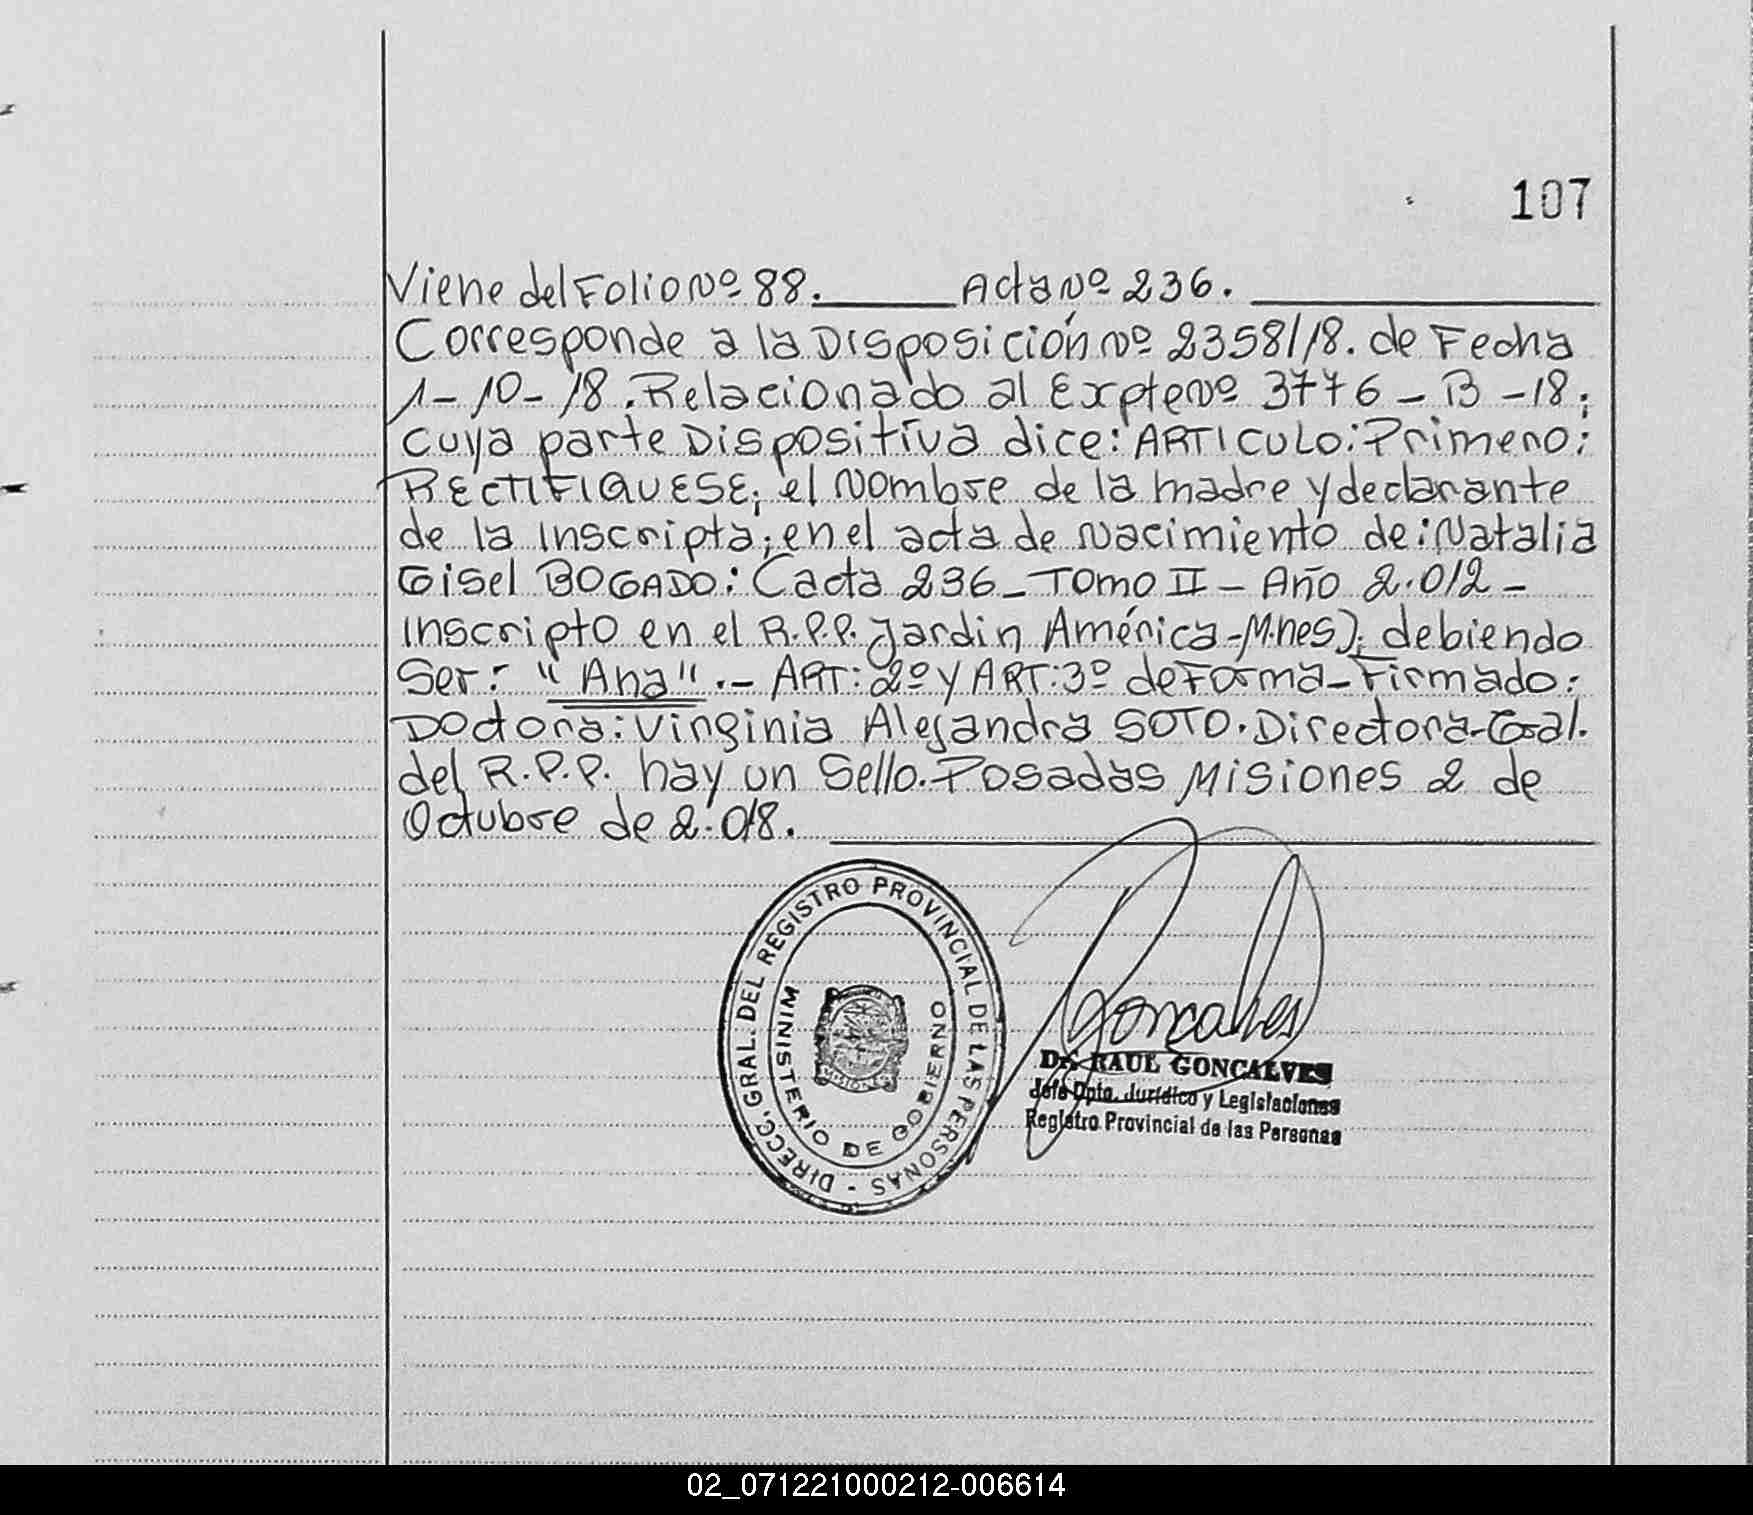 107
Viene del Folio Nº 88. Acta Nº 236.
Corresponde a la Disposición Nº 2358/18. de Fecha
1-10-18. Relacionado al Expte Nº 3776-B-18;
cuya parte Dispositiva dice: ARTICULO: Primero:
RECTIFIQUESE; el Nombre de la madre y declarante
de la Inscripta; en el acta de Nacimiento de: Natalia
Gisel BOGADO: (acta 236_ Tomo II - Año 2.012 -
Inscripto en el R.P.P. Jardin América-Mnes); debiendo
Ser: "Ana".- ART: 2º y ART: 3º de Forma-Firmado:
Doctora: Virginia Alejandra SOTO. Directora-Gral.
del R.P.P. hay un Sello. Posadas Misiones 2 de
Octubre de 2.018.
DIRECC. GRAL. DEL REGISTRO PROVINCIAL DE LAS PERSONAS -
MINISTERIO DE GOBIERNO
MISIONES
Goncalves
Dr. RAUL GONCALVES
Jefe Dpto. Jurídico y Legislaciones
Registro Provincial de las Personas
02_071221000212-006614